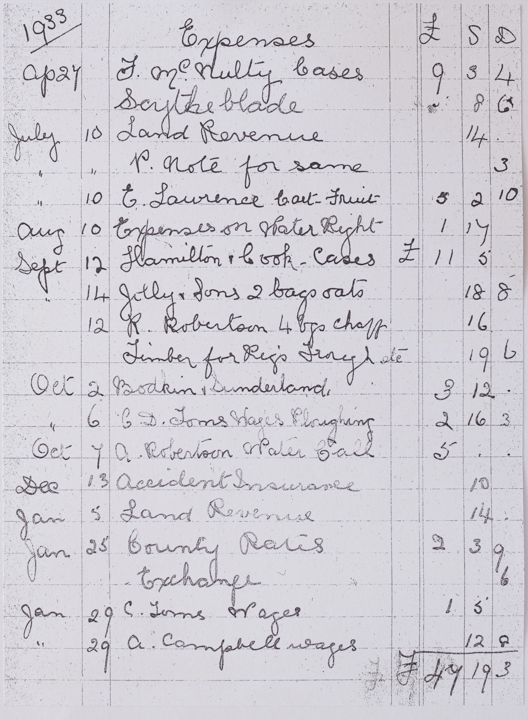 1933
Expenses £ S D
Ap 27 F. McNulty Cases 9 3 4
Scythe blade 8 6
July 10 Land Revenue 14 .
" " P. Note for same 3
" 10 E. Lawrence Cart-Fruit 5 2 10
Aug 10 Expenses on Water Right 1 17
Sept 12 Hamilton & Cook - Cases £ 11 5
" 14 Jolly & Sons 2 bags oats 18 8
12 R. Robertson 4 bgs chaff 16
Timber for Pigs Trough etc 19 6
Oct 2 Bodkin & Sunderland 3 12 .
" 6 C. D. Toms Wages Ploughing 2 16 3
Oct 7 A. Robertson Water 5 . .
Dec 13 Accident Insurance 10
Jan 5 Land Revenue 14 .
Jan 25 County Rates 2 3 9
Exchange 6
Jan 29 C. Toms Wages 1 5
" 29 A. Campbell wages 12
£ 47 19 3